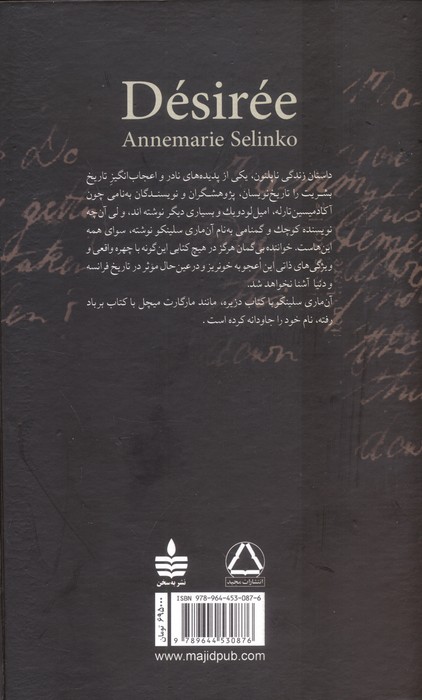 Désirée
Annemarie Selinko
داستان زندگی ناپلئون، یکی از پدیده‌های نادر و اعجاب‌انگیز تاریخ
بشریت را تاریخ‌نویسان، پژوهشگران و نویسندگان به‌نامی چون
آکادمیسین تارله، امیل لودویک و بسیاری دیگر نوشته اند، و لی آن‌چه
نویسنده کوچک و گمنامی به‌نام آن‌ماری سلینکو نوشته، سوای همه
این‌هاست. خواننده بی‌گمان هرگز در هیچ کتابی این‌گونه با چهره واقعی و
ویژگی‌های ذاتی این اعجوبه خونریز و درعین‌حال مؤثر در تاریخ فرانسه
و دنیا آشنا نخواهد شد.
آن‌ماری سلینکو با کتاب دزیره، مانند مارگارت میچل با کتاب بر باد
رفته، نام خود را جاودانه کرده است .
نشر به‌سخن
انتشارات مجید
ISBN 978-964-453-087-6
9 789644 530876
۶۹۵۰۰۰ تومان
www.majidpub.com